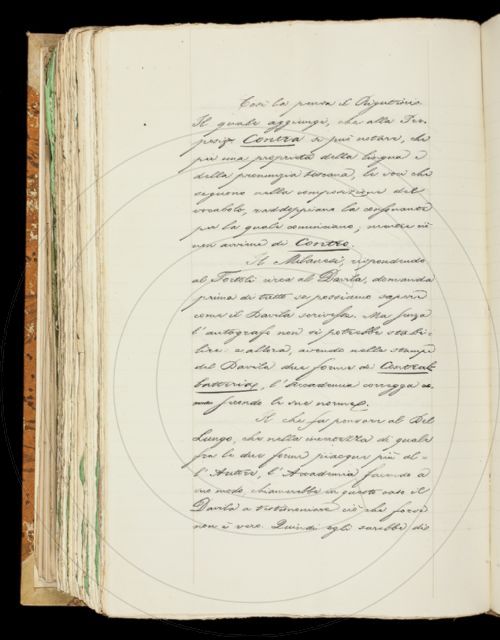 Così la pensa il Rigutini.
Il quale aggiunge, che alla Pre-
posiz. Contra si può notare, che
per una proprietà della lingua e
della pronunzia toscana, le voci che
seguono nella composizione del
vocabolo, raddoppiano la consonante
per la quale cominciano; mentre ciò
non avviene di Contro.
Il Milanesi, rispondendo
al Tortoli circa al Davila, domanda
prima di tutto se possiamo sapere
come il Davila scrivesse. Ma senza
l'autografo non si potrebbe stabi-
lire: e allora, avendo nelle stampe
del Davila due forme di Contrab
batteria, l'Accademia corregga
secondo le sue norme.
Il che fa pensare al Del
Lungo, che nella incertezza di quale
fra le due forme piacque più al-
l'Autore, l'Accademia facendo a
suo modo chiamerebbe in questo caso il
Davila a testimoniare ciò che forse
non è vero. Quindi egli sarebbe di